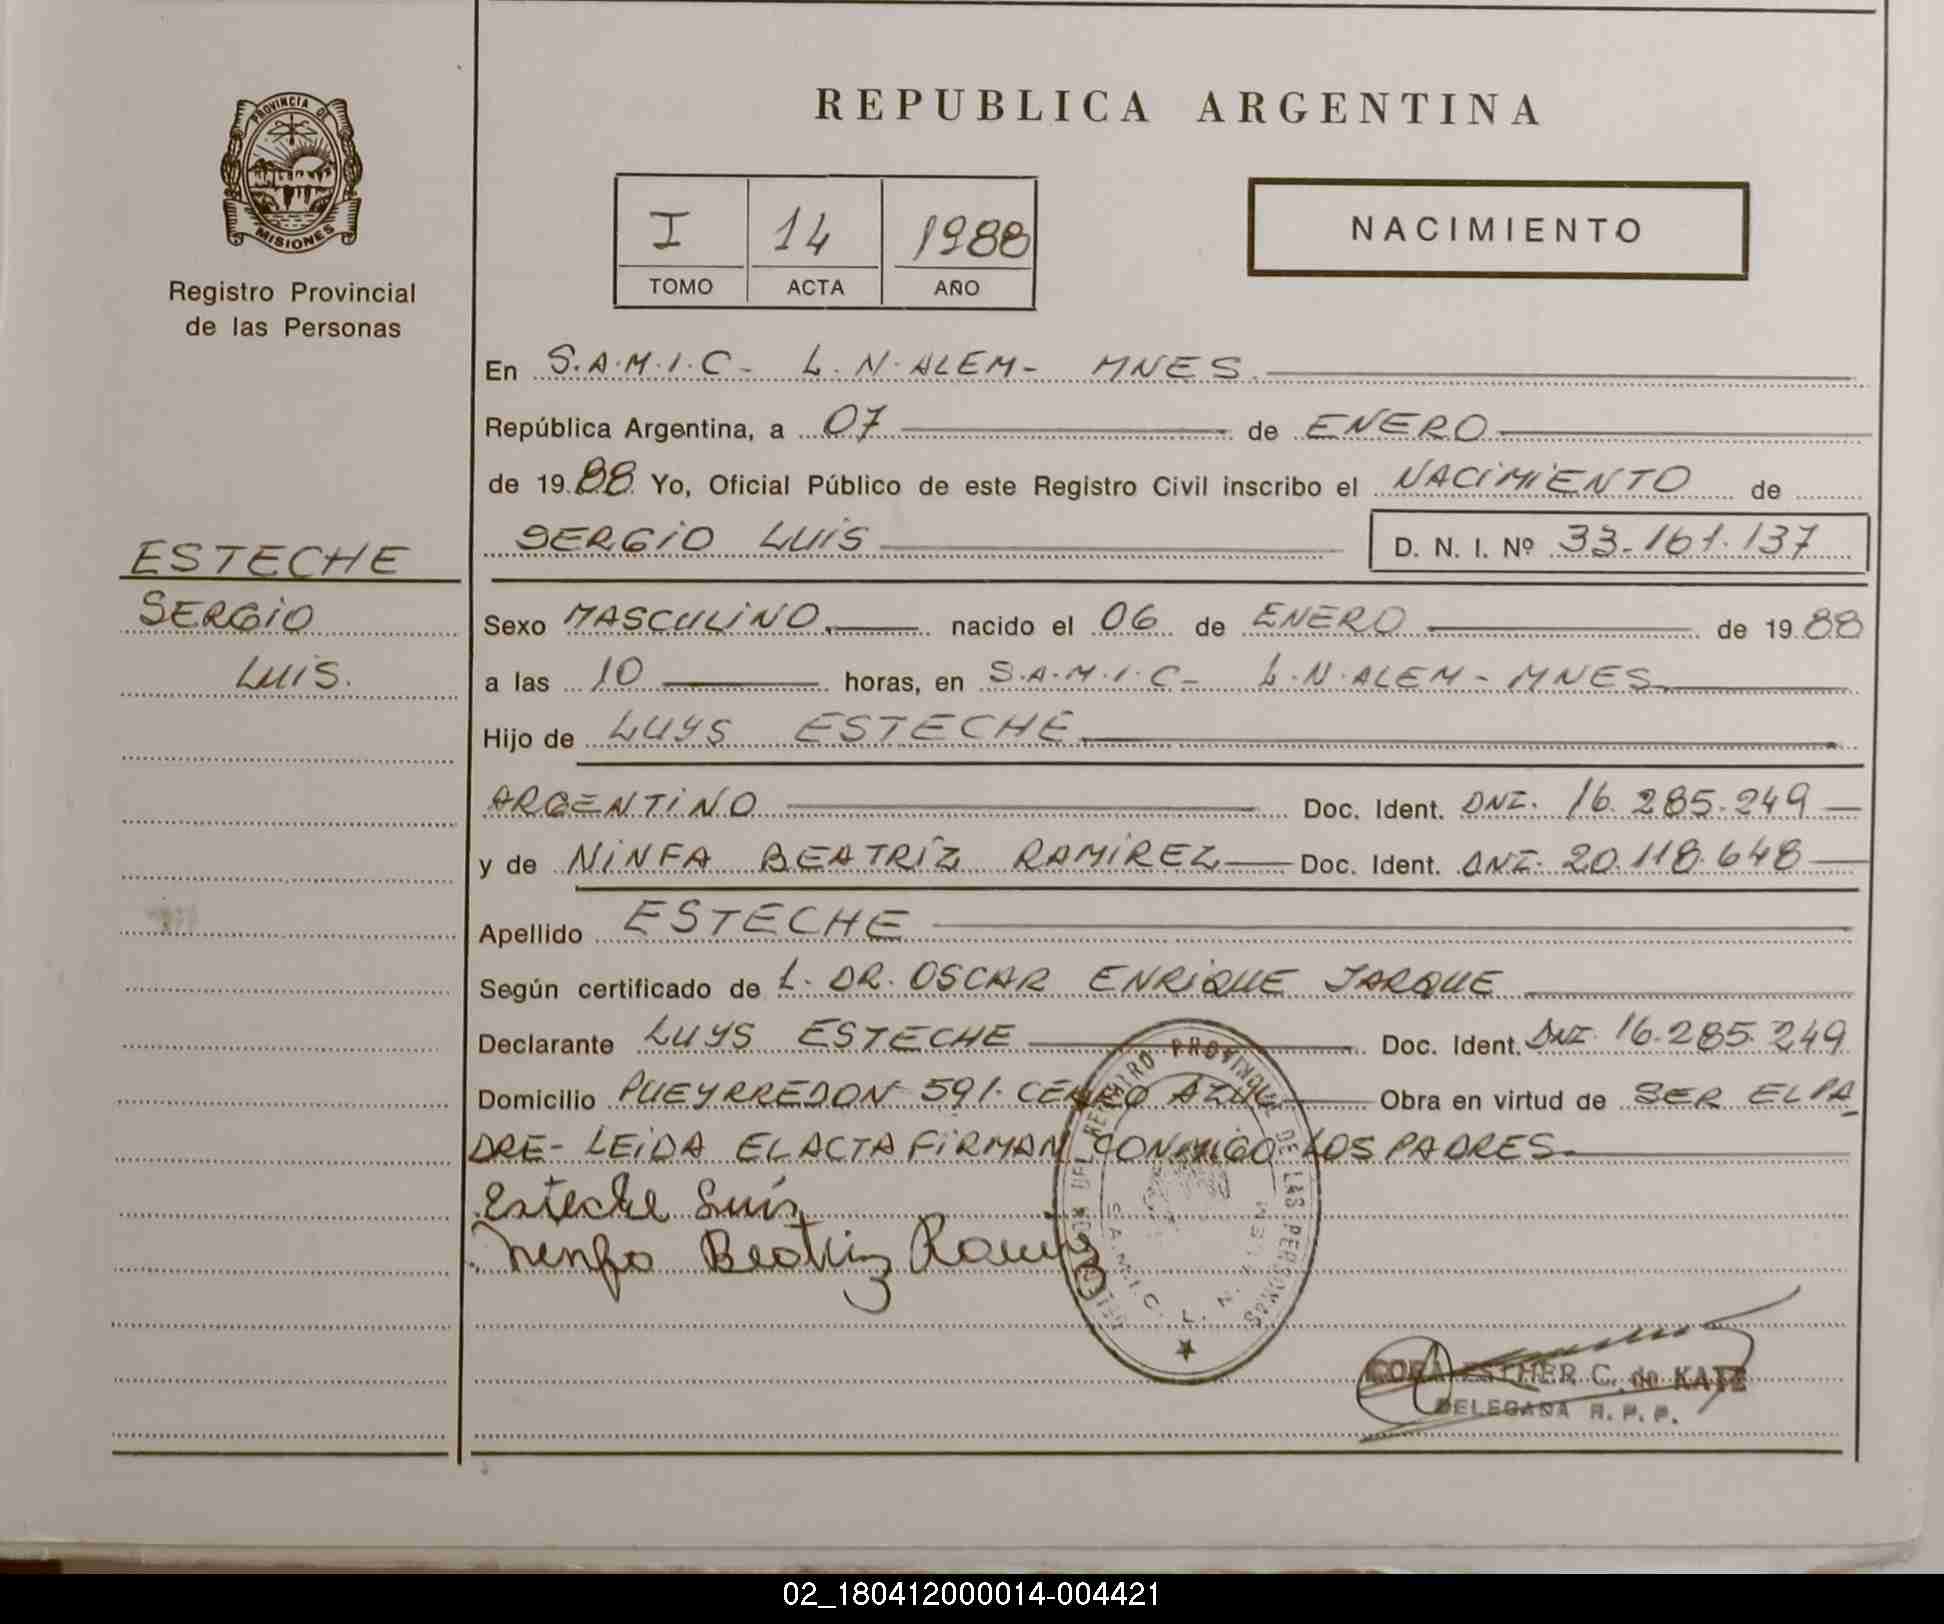 PROVINCIA DE
MISIONES
Registro Provincial
de las Personas
ESTECHE
SERGIO
LUIS.
REPUBLICA ARGENTINA
I 14 1988
TOMO ACTA AÑO
NACIMIENTO
En S.A.M.I.C- L.N.ALEM- MNES.
República Argentina, a 07 de ENERO
de 1988 Yo, Oficial Público de este Registro Civil inscribo el NACIMIENTO de
SERGIO LUIS D. N. I. Nº 33.161.137
Sexo MASCULINO. nacido el 06 de ENERO de 1988
a las 10 horas, en S.A.M.I.C- L.N.ALEM- MNES
Hijo de LUYS ESTECHE
ARGENTINO Doc. Ident. DNI. 16.285.249
y de NINFA BEATRIZ RAMIREZ Doc. Ident. DNI. 20.118.648
Apellido ESTECHE
Según certificado de L. DR. OSCAR ENRIQUE JARQUE
Declarante LUYS ESTECHE Doc. Ident. DNI. 16.285.249
Domicilio PUEYRREDON 591. CERRO AZUL Obra en virtud de SER EL PA
DRE- LEIDA EL ACTA FIRMAN CONMIGO LOS PADRES
Esteche Luis
Nenfa Beatriz Ramirez
DEL REGISTRO PROVINCIAL DE LAS PERSONAS
S.A.M.I.C. L. N. ALEM
ESTHER C. de KATZ
DELEGADA R. P. P.
02_180412000014-004421